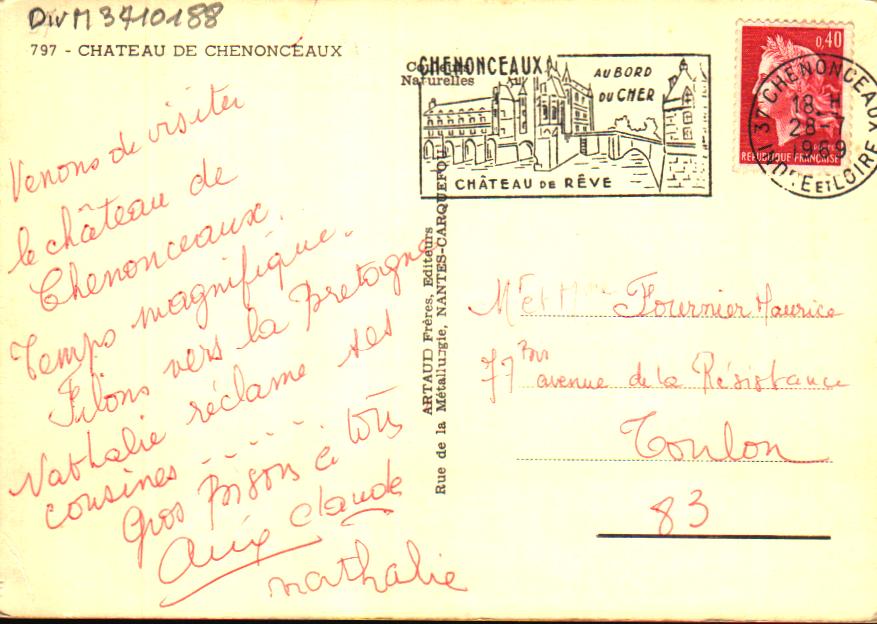 DivM3710188
797 - CHATEAU DE CHENONCEAUX
Couleurs
Naturelles
CHENONCEAUX
AU BORD
DU CHER
CHÂTEAU DE RÊVE
0,40
REPUBLIQUE FRANÇAISE
37 CHENONCEAUX
18 H
28-7
1969
INDRE ET LOIRE
Venons de visiter
le château de
Chenonceaux.
Temps magnifique.
Filons vers la Bretagne
Nathalie réclame ses
cousines ......
Gros Bisous à tous
Claude
nathalie
ARTAUD Frères, Editeurs
Rue de la Métallurgie, NANTES-CARQUEFOU
Mr et Mme Fournier Maurice
77 Bis avenue de la Résistance
Toulon
83